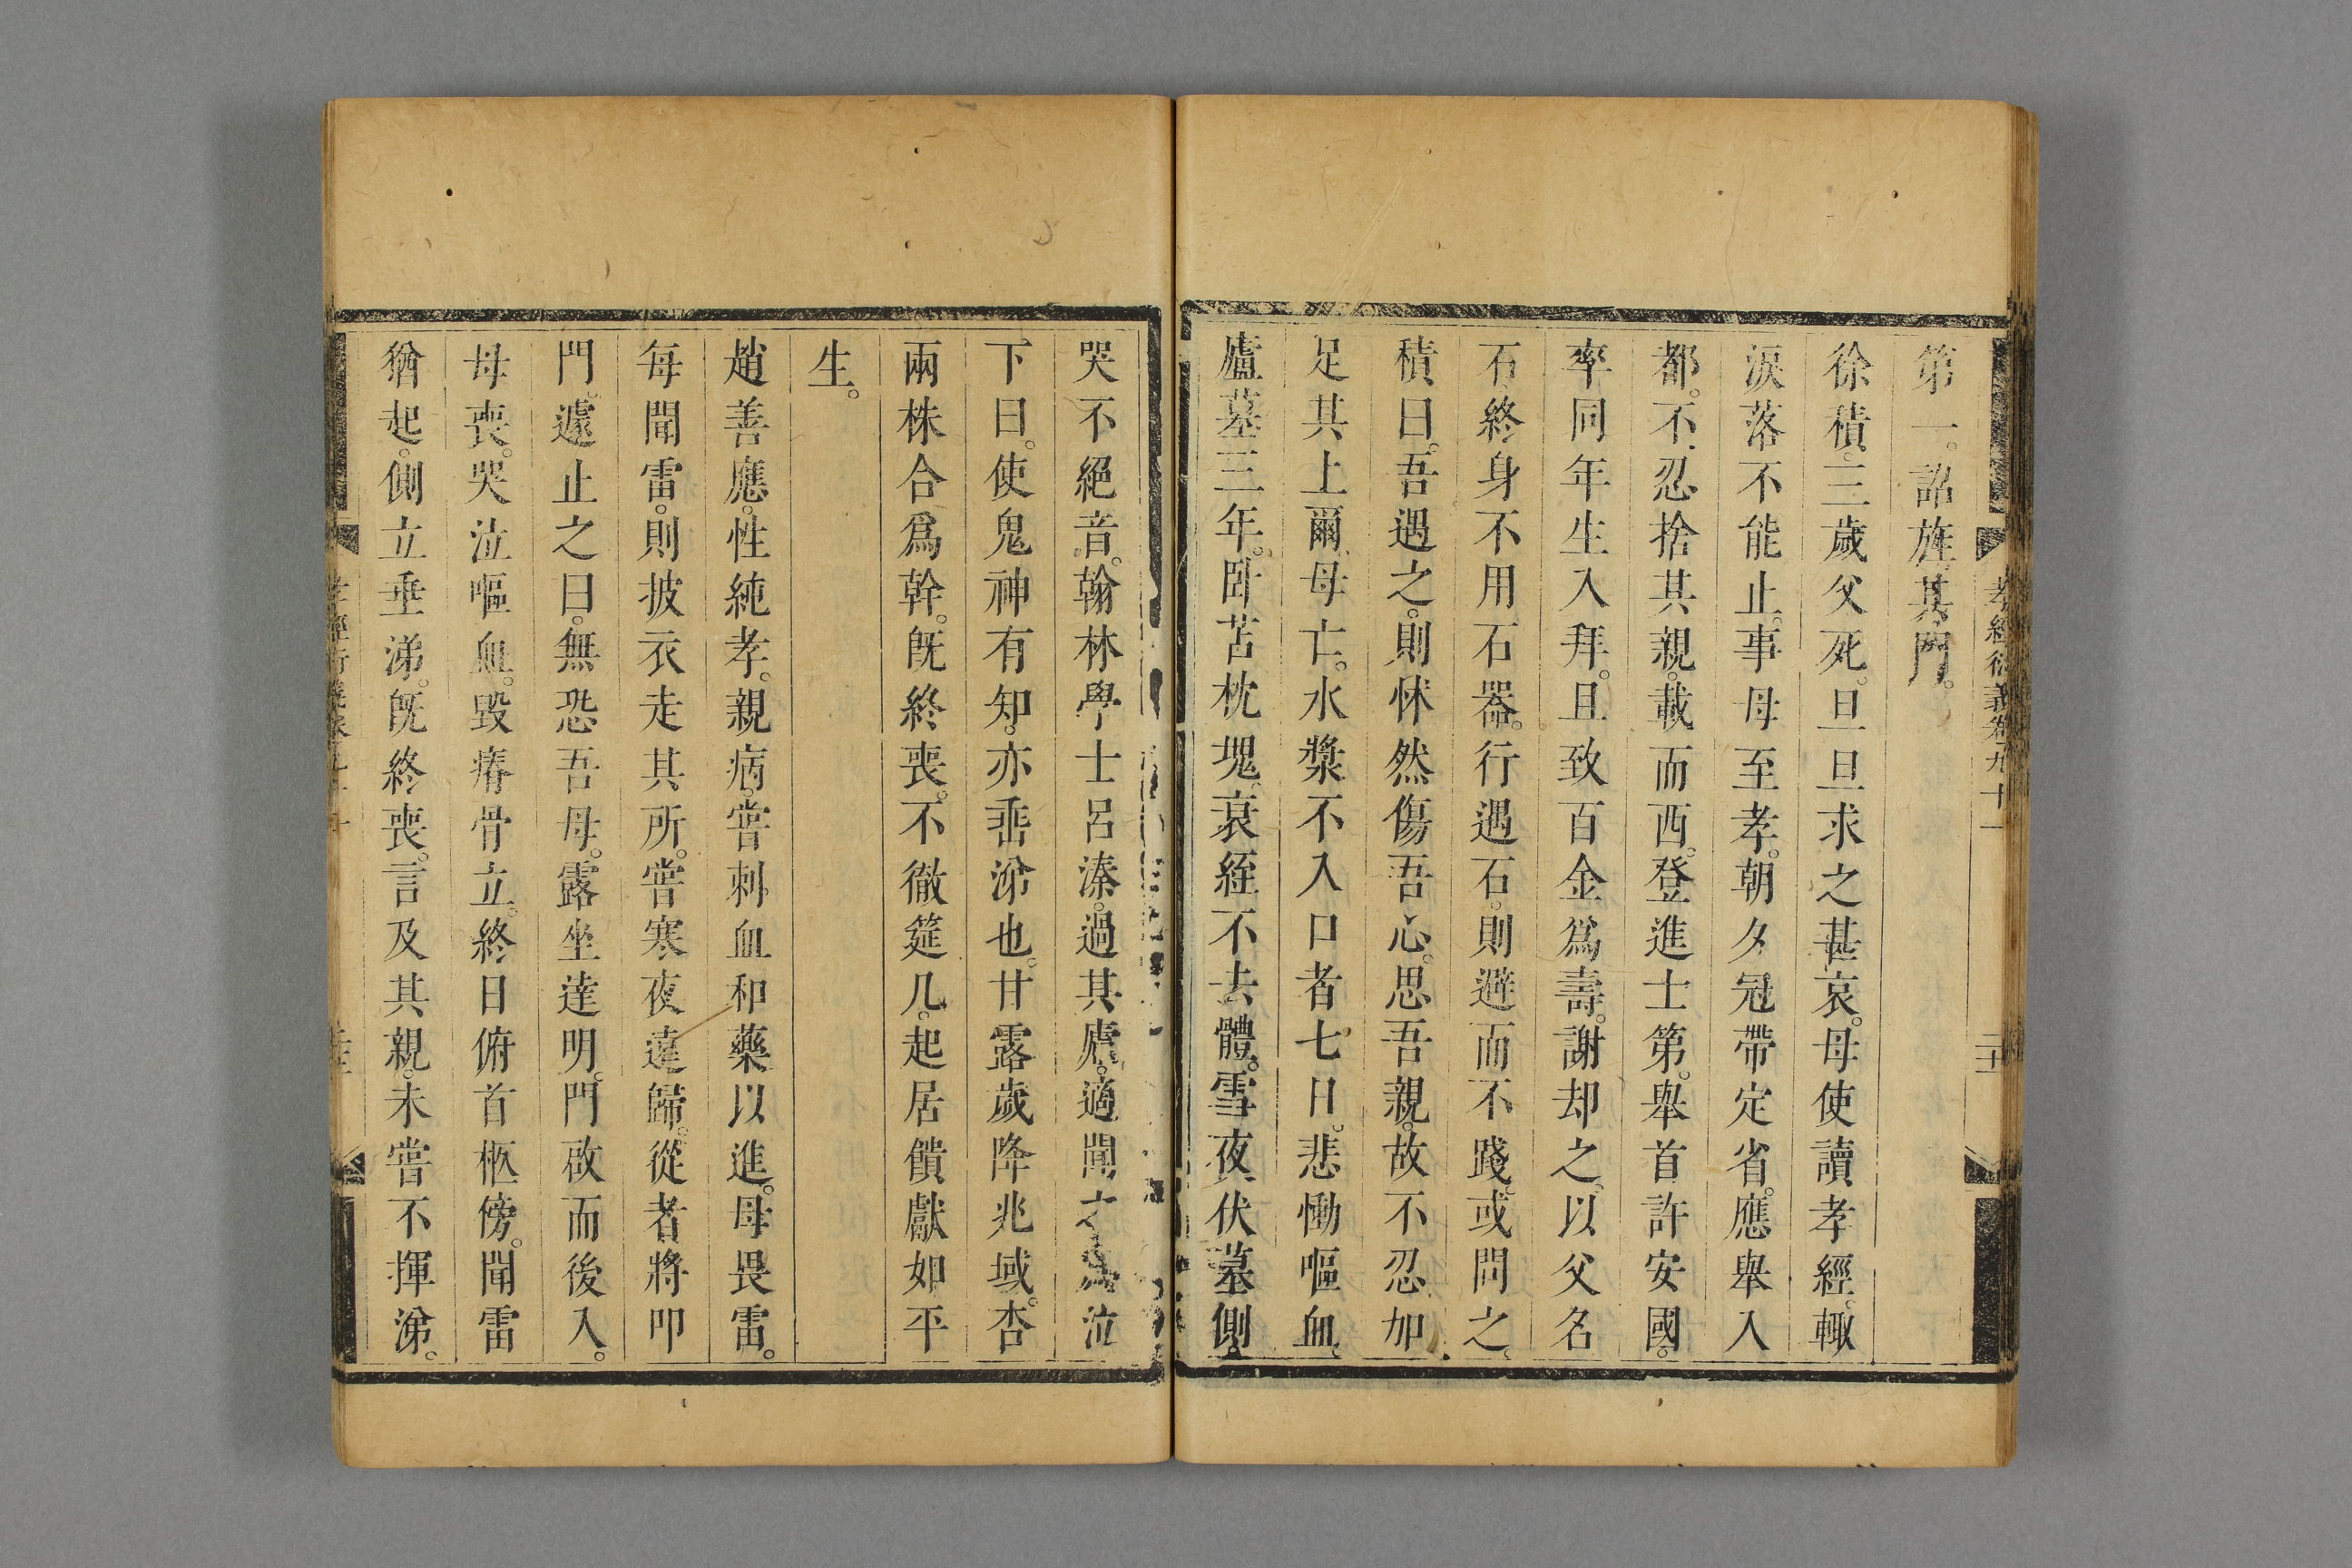 孝經衍義卷九十一
第一。詔旌其門。
徐積。三歲父死。旦旦求之甚哀。母使讀孝經。輙
淚落不能止。事母至孝。朝夕冠帶定省。應舉入
都。不忍捨其親。載而西。登進士第。舉首許安國。
率同年生入拜。且致百金爲壽。謝却之。以父名
石。終身不用石器。行遇石。則避而不踐。或問之。
積曰。吾遇之。則怵然傷吾心。思吾親。故不忍加
足其上爾。母亡。水漿不入口者七日。悲慟嘔血。
廬墓三年。臥苫枕塊。衰絰不去體。雪夜伏墓側。
哭不絕音。翰林學士呂溱。過其廬。適聞之爲泣
下曰。使鬼神有知。亦垂涕也。甘露歲降兆域。杏
兩株合爲幹。既終喪。不徹筵几。起居饋獻如平
生。
趙善應。性純孝。親病。嘗刺血和藥以進。母畏雷。
每聞雷。則披衣走其所。嘗寒夜遠歸。從者將叩
門。遽止之曰。無恐吾母。露坐達明。門啟而後入。
母喪。哭泣嘔血。毀瘠骨立。終日俯首柩傍。聞雷
猶起。側立垂涕。既終喪。言及其親。未嘗不揮涕。